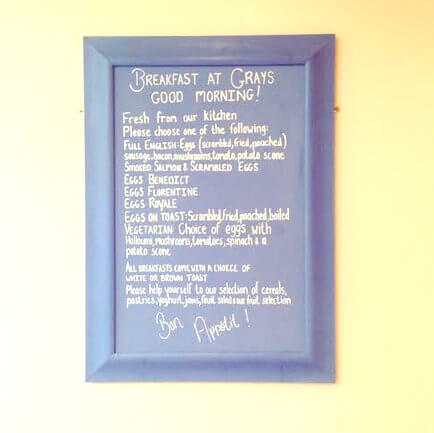 BREAKFAST AT GRAYS
GOOD MORNING!
Fresh from our kitchen
Please choose one of the following:
FULL ENGLISH: Eggs (scrambled, fried, poached)
sausage, bacon, mushrooms, tomato, potato scone
SMOKED SALMON & SCRAMBLED EGGS
EGGS BENEDICT
EGGS FLORENTINE
EGGS ROYALE
EGGS ON TOAST: Scrambled, fried, poached, boiled
VEGETARIAN Choice of eggs with
Halloumi, mushrooms, tomatoes, spinach & a
potato scone
ALL BREAKFASTS COME WITH A CHOICE OF
WHITE OR BROWN TOAST
Please help yourself to our selection of cereals,
pastries, yoghurt, jams, fruit salad & our fruit selection
Bon Appétit!